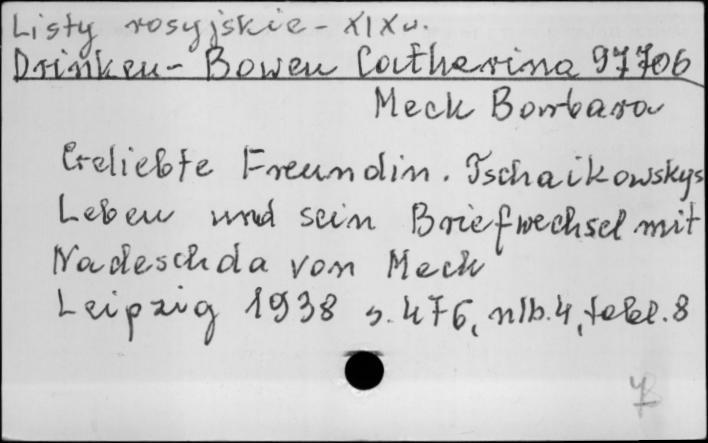 Listy rosyjskie - XIX w.
Drinken - Bowen Catherina 97706
Meck Barbara
Geliebte Freundin. Tschaikowskys
Leben und sein Briefwechsel mit
Nadeschda von Meck
Leipzig 1938 s. 476, nlb. 4, tabl. 8